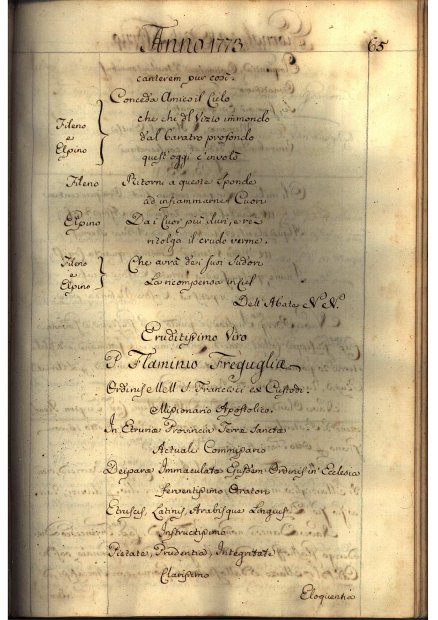 Anno 1773 65
canterem pur così.
Conceda Amico il Cielo
Fileno e Elpino
che chi dl Vizio immondo
dal baratro profondo
quest'oggi c'involò
Fileno Ritorni a queste Sponde
ad infiammarne i Cuori
Elpino Da i Cuor più duri, e rei
ritolga il crudo verme.
Fileno e Elpino
Che avrà dei suoi Sudori
La ricompensa in Ciel
Dell'Abate N. N.
Eruditissimo Viro
P. Flaminio Freguglia
Ordinis S. Francisci ex Custodi.
Missionario Apostolico.
In Etruria Provincia Terræ Sanctæ
Actuali Commissario
Deiparæ Immaculatæ Ejusdem Ordinis in Ecclesia
ferventissimo Oratori
Etruscis, Latinis, Arabisque Linguis
Instructissimo
Pietate, Prudentia, Integritate
Clarissimo
Eloquentia